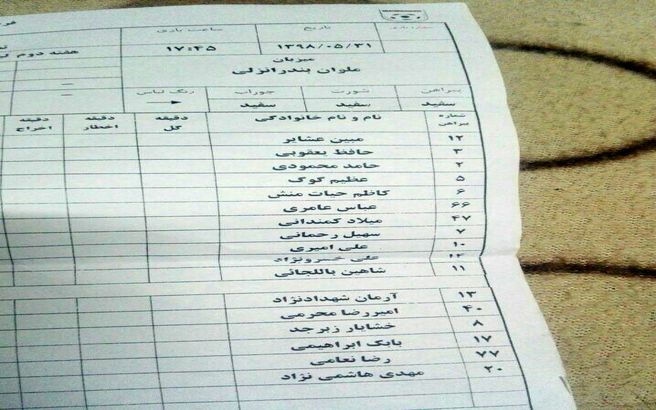 تاریخ ساعت بازی
۱۳۹۸/۰۵/۳۱ ۱۷:۴۵
هفته دوم
میزبان
ملوان بندرانزلی
پیراهن شورت جوراب رنگ لباس
سفید سفید سفید
شماره پیراهن نام و نام خانوادگی دقیقه گل دقیقه اخطار دقیقه اخراج
۱۲ مبین عشایر
۳ حافظ یعقوبی
۲ حامد محمودی
۵ عظیم گوک
۶ کاظم حیات منش
۶۶ عباس عامری
۴۷ میلاد کمندانی
۷ سهیل رحمانی
۱۰ علی امیری
علی خسرونژاد
۱۱ شاهین باللجائی
۱۳ آرمان شهدادنژاد
۴۰ امیررضا محرمی
۸ خشایار زبرجد
۱۷ بابک ابراهیمی
۷۷ رضا نعامی
۲۰ مهدی هاشمی نژاد